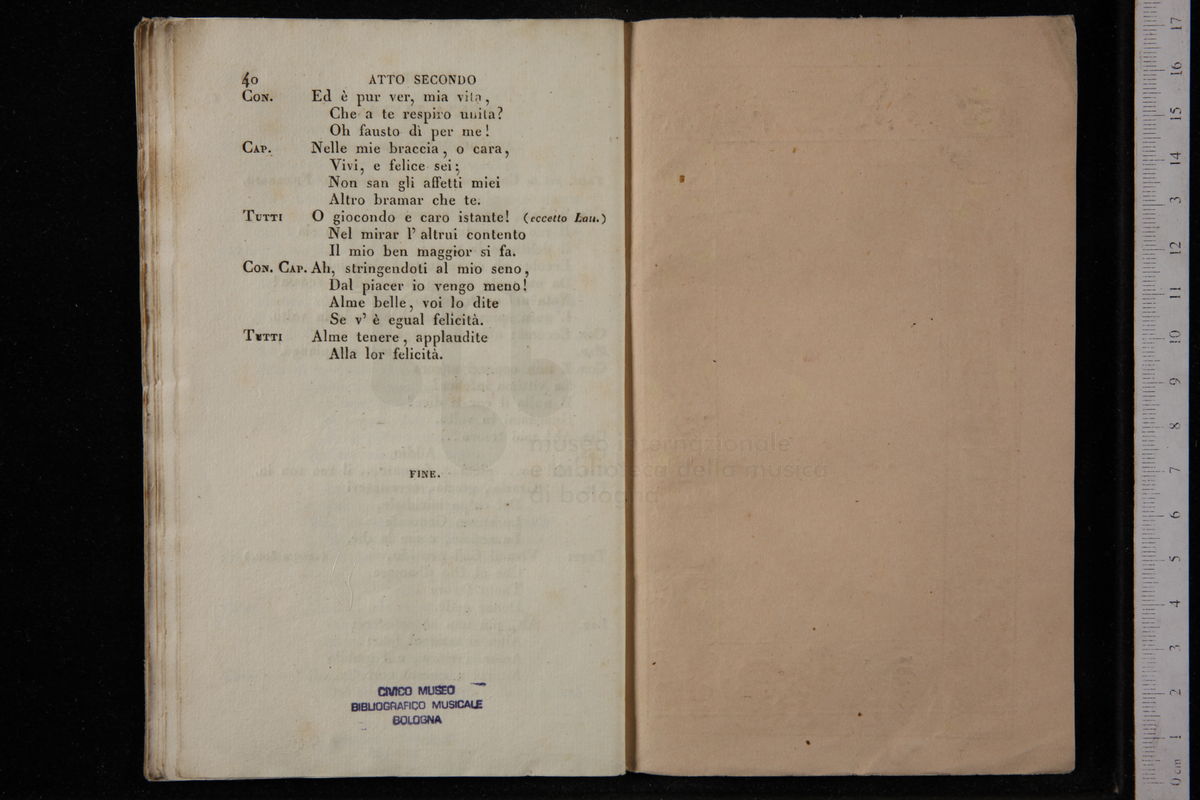 40 ATTO SECONDO
CON. Ed è pur ver, mia vita,
Che a te respiro unita?
Oh fausto dì per me!
CAP. Nelle mie braccia, o cara,
Vivi, e felice sei;
Non san gli affetti miei
Altro bramar che te.
TUTTI O giocondo e caro istante! (eccetto Lau.)
Nel mirar l' altrui contento
Il mio ben maggior si fa.
CON. CAP. Ah, stringendoti al mio seno,
Dal piacer io vengo meno!
Alme belle, voi lo dite
Se v' è egual felicità.
TUTTI Alme tenere, applaudite
Alla lor felicità.
FINE.
CIVICO MUSEO
BIBLIOGRAFICO MUSICALE
BOLOGNA
museo internazionale
e biblioteca della musica
di bologna
0 cm 1 2 3 4 5 6 7 8 9 10 11 12 13 14 15 16 17